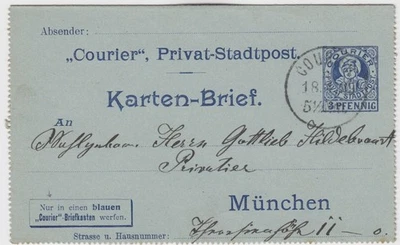 Absender:
„Courier“, Privat-Stadtpost.
COURIER
3 PFENNIG
Karten-Brief.
An
Herrn Gottlieb Hildebrandt
Privatier
Nur in einen blauen
„Courier“-Briefkasten werfen.
München
Strasse u. Hausnummer: